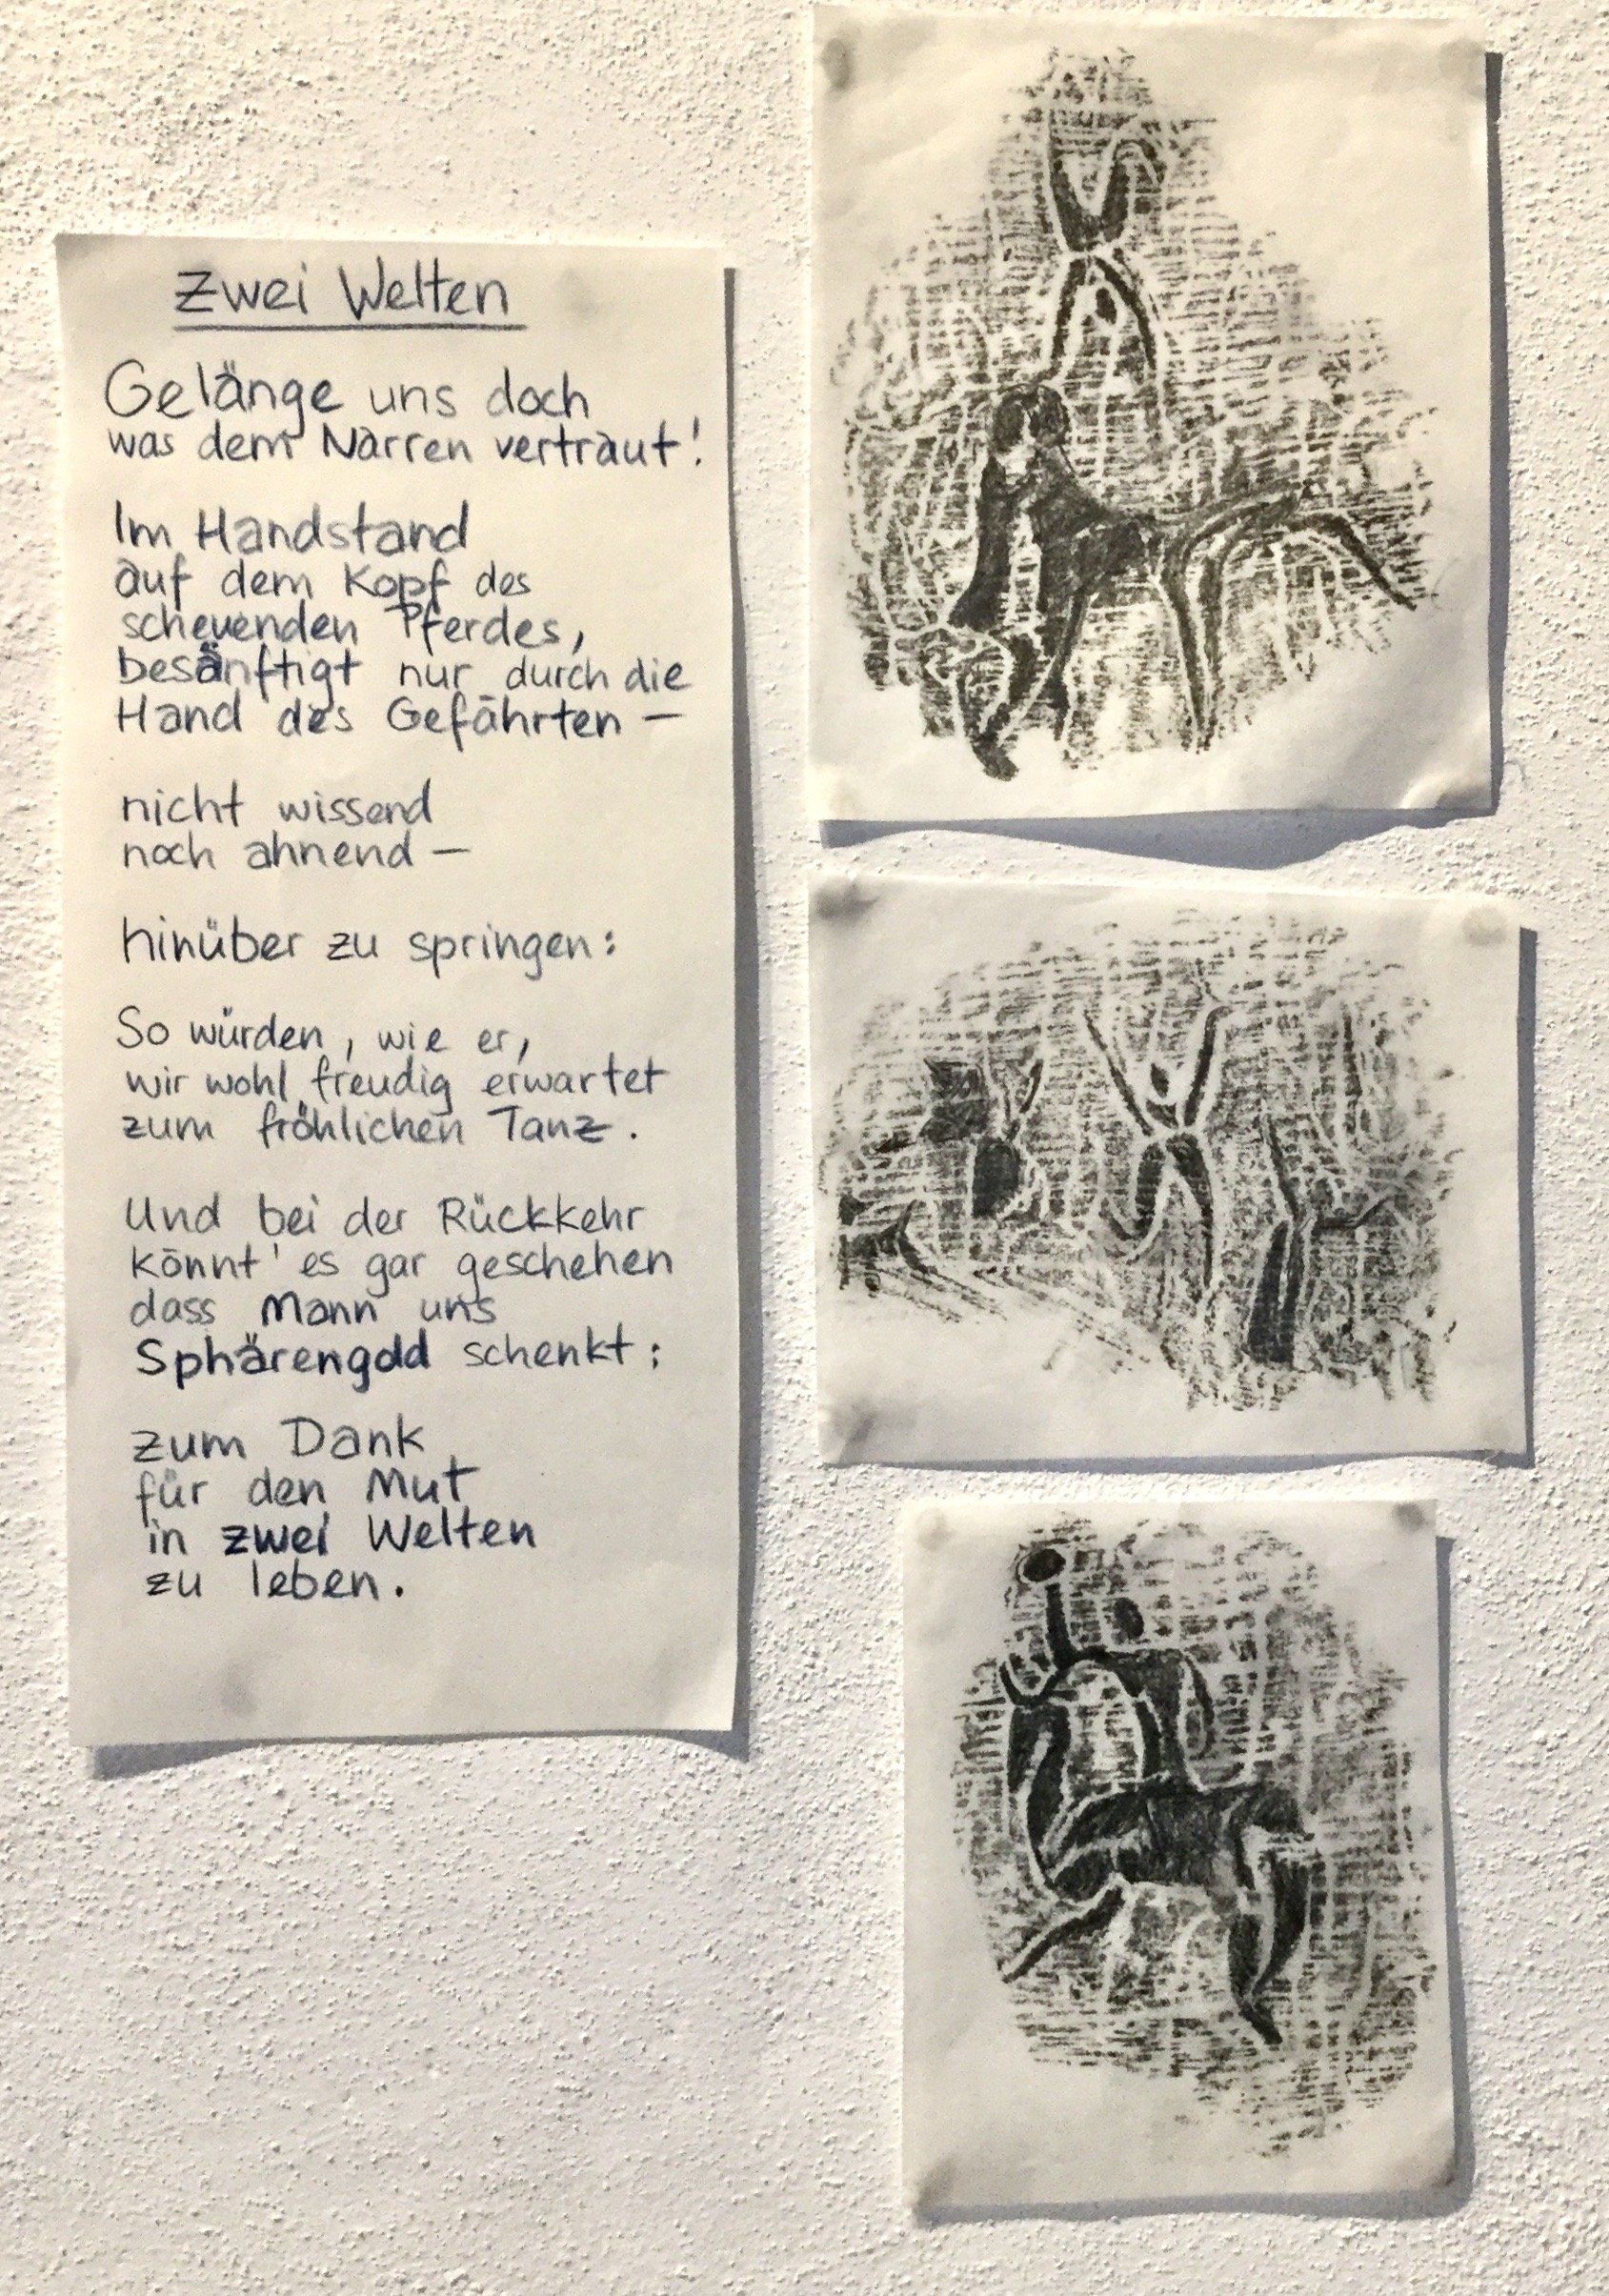 Zwei Welten
Gelänge uns doch
was dem Narren vertraut!
Im Handstand
auf dem Kopf des
scheuenden Pferdes,
besänftigt nur durch die
Hand des Gefährten —
nicht wissend
noch ahnend —
hinüber zu springen:
So würden, wie er,
wir wohl freudig erwartet
zum fröhlichen Tanz.
Und bei der Rückkehr
könnt' es gar geschehen
dass Mann uns
Sphärengold schenkt:
zum Dank
für den Mut
in zwei Welten
zu leben.